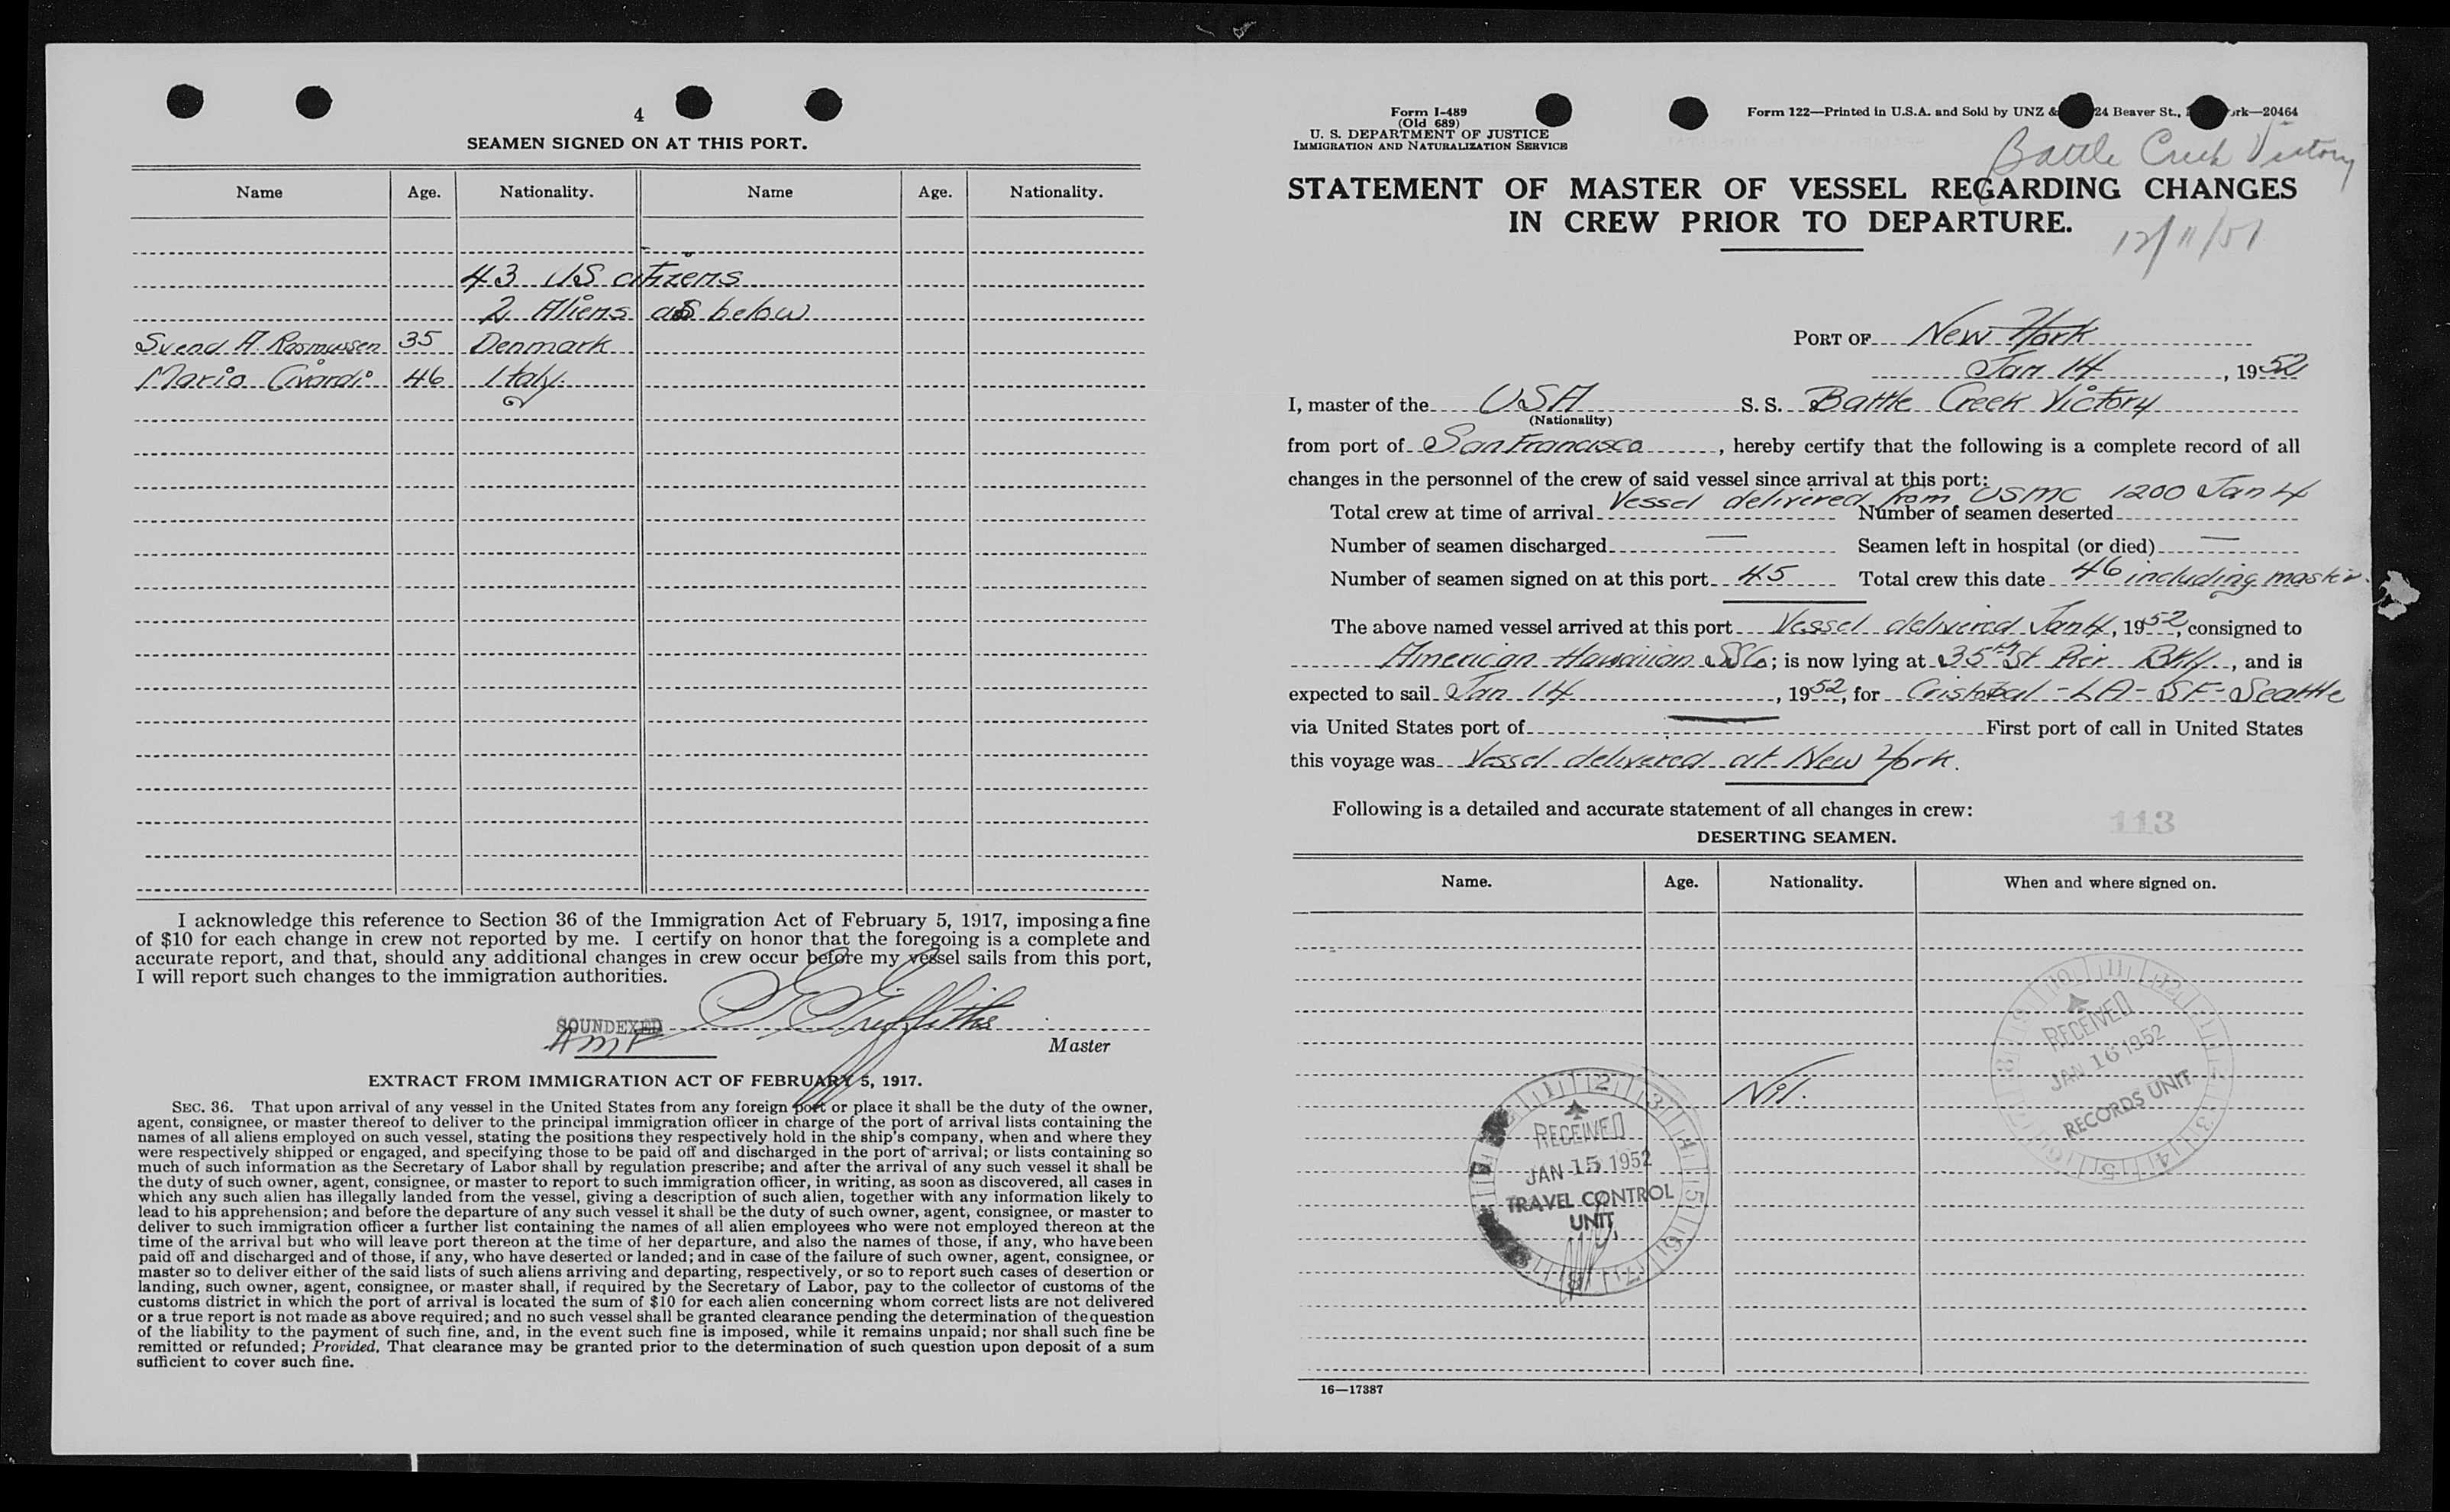 4
SEAMEN SIGNED ON AT THIS PORT.
Name Age. Nationality. Name Age. Nationality.
43 US citizens
2 Aliens as below
Svend A. Rasmussen 35 Denmark
Mario Civardi 46 Italy.
I acknowledge this reference to Section 36 of the Immigration Act of February 5, 1917, imposing a fine
of $10 for each change in crew not reported by me. I certify on honor that the foregoing is a complete and
accurate report, and that, should any additional changes in crew occur before my vessel sails from this port,
I will report such changes to the immigration authorities.
SOUNDEXED
Griffiths
Master
EXTRACT FROM IMMIGRATION ACT OF FEBRUARY 5, 1917.
SEC. 36. That upon arrival of any vessel in the United States from any foreign port or place it shall be the duty of the owner,
agent, consignee, or master thereof to deliver to the principal immigration officer in charge of the port of arrival lists containing the
names of all aliens employed on such vessel, stating the positions they respectively hold in the ship's company, when and where they
were respectively shipped or engaged, and specifying those to be paid off and discharged in the port of arrival; or lists containing so
much of such information as the Secretary of Labor shall by regulation prescribe; and after the arrival of any such vessel it shall be
the duty of such owner, agent, consignee, or master to report to such immigration officer, in writing, as soon as discovered, all cases in
which any such alien has illegally landed from the vessel, giving a description of such alien, together with any information likely to
lead to his apprehension; and before the departure of any such vessel it shall be the duty of such owner, agent, consignee, or master to
deliver to such immigration officer a further list containing the names of all alien employees who were not employed thereon at the
time of the arrival but who will leave port thereon at the time of her departure, and also the names of those, if any, who have been
paid off and discharged and of those, if any, who have deserted or landed; and in case of the failure of such owner, agent, consignee, or
master so to deliver either of the said lists of such aliens arriving and departing, respectively, or so to report such cases of desertion or
landing, such owner, agent, consignee, or master shall, if required by the Secretary of Labor, pay to the collector of customs of the
customs district in which the port of arrival is located the sum of $10 for each alien concerning whom correct lists are not delivered
or a true report is not made as above required; and no such vessel shall be granted clearance pending the determination of the question
of the liability to the payment of such fine, and, in the event such fine is imposed, while it remains unpaid; nor shall such fine be
remitted or refunded; Provided, That clearance may be granted prior to the determination of such question upon deposit of a sum
sufficient to cover such fine.
Form I-489
(Old 689)
U. S. DEPARTMENT OF JUSTICE
IMMIGRATION AND NATURALIZATION SERVICE
Form 122—Printed in U.S.A. and Sold by UNZ & 24 Beaver St., ork—20464
Battle Creek Victory
STATEMENT OF MASTER OF VESSEL REGARDING CHANGES
IN CREW PRIOR TO DEPARTURE.
12/11/51
PORT OF New York
Jan 14, 1952
I, master of the USA S. S. Battle Creek Victory
(Nationality)
from port of San Francisco, hereby certify that the following is a complete record of all
changes in the personnel of the crew of said vessel since arrival at this port:
Vessel delivered from USMC 1200 Jan 4
Total crew at time of arrival Number of seamen deserted
Number of seamen discharged — Seamen left in hospital (or died) —
Number of seamen signed on at this port 45 Total crew this date 46 including master.
The above named vessel arrived at this port Vessel delivered Jan 4, 1952, consigned to
American Hawaiian SSCo; is now lying at 35th St Pier Bkly, and is
expected to sail Jan 14, 1952, for Cristobal - LA - SF - Seattle
via United States port of — First port of call in United States
this voyage was Vessel delivered at New York.
Following is a detailed and accurate statement of all changes in crew:
113
DESERTING SEAMEN.
Name. Age. Nationality. When and where signed on.
Nil.
RECEIVED
JAN 16 1952
RECORDS UNIT
RECEIVED
JAN 15 1952
TRAVEL CONTROL
UNIT
16—17387